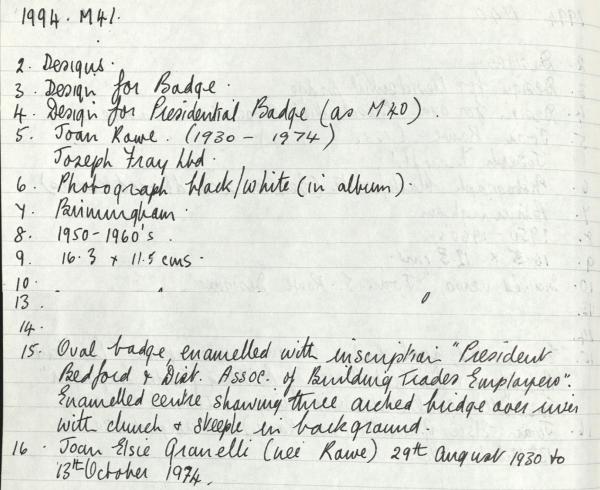 1994. M41.
2. Designs.
3. Design for Badge.
4. Design for Presidential Badge (as M40).
5. Joan Rawe. (1930 - 1974)
Joseph Fray Ltd.
6. Photograph black/white (in album)
7. Birmingham.
8. 1950-1960's.
9. 16.3 x 11.5 cms.
10.
13.
14.
15. Oval badge, enamelled with inscription "President
Bedford & Dist. Assoc. of Building Trades Employers".
Enamelled centre showing three arched bridge over river
with church & steeple in background.
16. Joan Elsie Granelli (neé Rawe) 29th August 1930 to
13th October 1974.